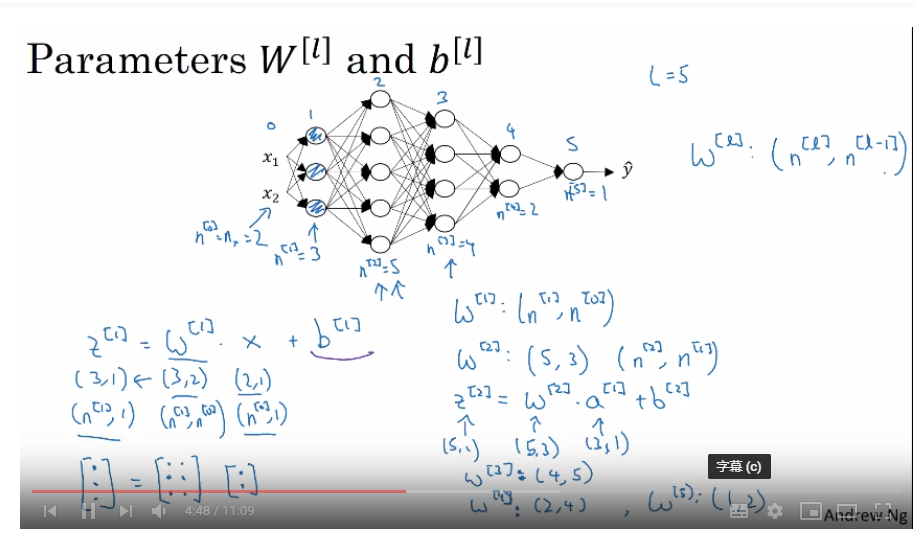 Parameters W^[l] and b^[l]
L = 5
0 1 2 3 4 5
x₁
x₂
ŷ
W^[l] : (n^[l], n^[l-1])
n^[0] = nₓ = 2
n^[1] = 3
n^[2] = 5
n^[3] = 4
n^[4] = 2
n^[5] = 1
z^[1] = W^[1] · x + b^[1]
(3,1) ← (3,2) (2,1)
(n^[1], 1) (n^[1], n^[0]) (n^[0], 1)
W^[1] : (n^[1], n^[0])
W^[2] : (5, 3) (n^[2], n^[1])
z^[2] = W^[2] · a^[1] + b^[2]
(5,1) (5,3) (3,1)
W^[3] : (4, 5)
W^[4] : (2, 4) , W^[5] : (1, 2)
字幕 (c)
4:48 / 11:09
Andrew Ng